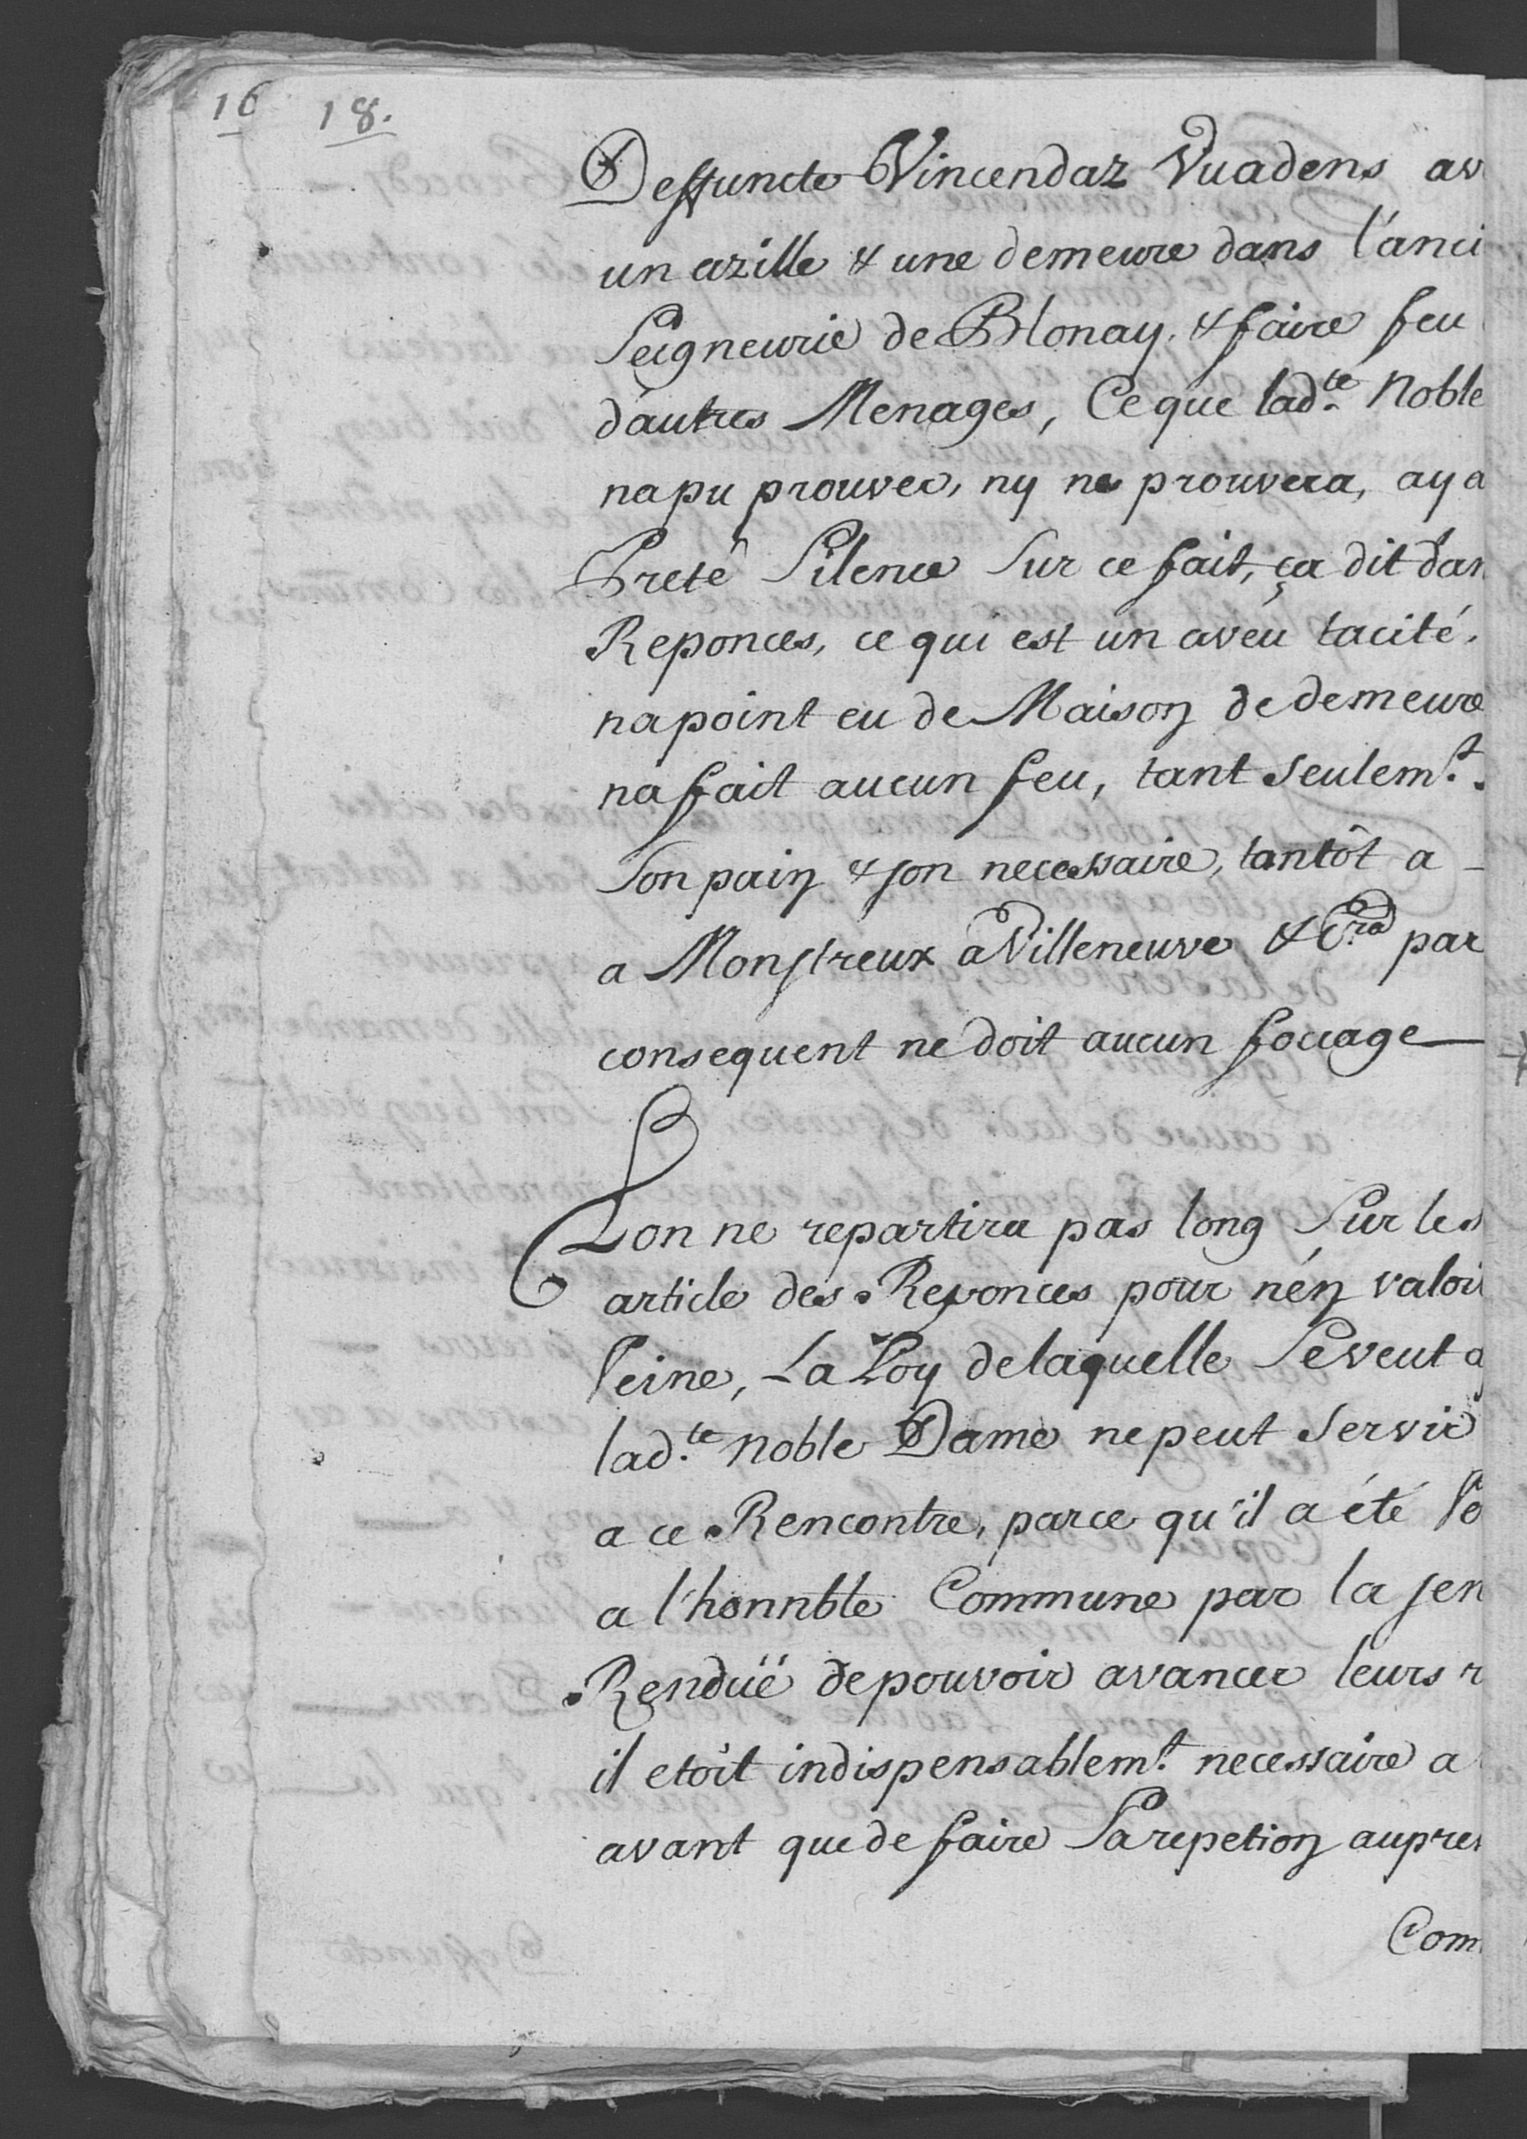 16 18.
Deffuncte Vincendaz Vuadens av
un azille & une demeure dans l'anci
Seigneurie de Blonay, & faire feu
d'autres Menages, Ce que lad.te Noble
na pu prouver, ny ne prouvera, aya
Preté Silence Sur ce fait, ça dit dan
Reponces, ce qui est un aveu tacité,
na point eu de Maison de demeure
na fait aucun feu, tant Seulem.t
Son pain & son necessaire, tantôt a -
a Monstreux a Villeneuve & C.ra par
consequent ne doit aucun focage
Lon ne repartira pas long Sur les
article des Reponces pour n'én valoir
Peine, La Loy de laquelle Se veut
lad.te Noble Dame ne peut Servir
a ce Rencontre, parce qu'il a été
a l'honnble Commune par la sen
Rendüe de pouvoir avancer leurs r
il etoit indispensablem.t necessaire a
avant que de faire Sa repetion aupres
Com